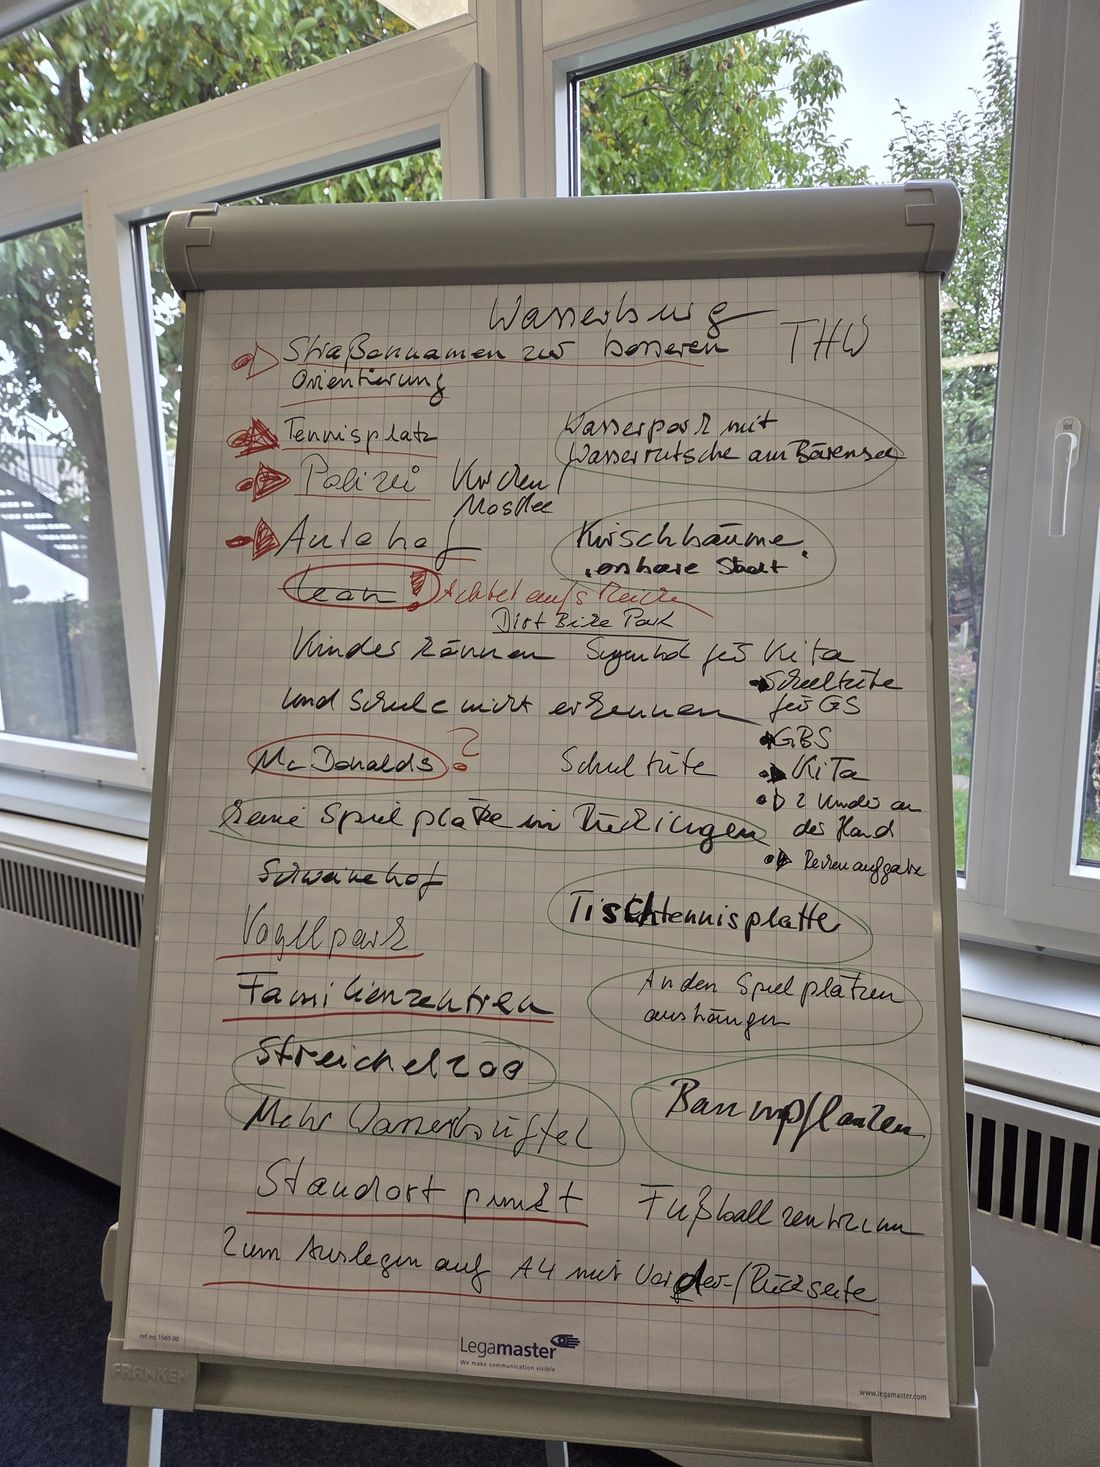 Wasserburg
THW
Straßennamen zur besseren
Orientierung
Tennisplatz
Wasserpark mit
Wasserrutsche am Bärensee
Polizei
Kirchen/
Moschee
Autohof
Kirschbäume
"essbare Stadt"
Lean!
Achtet aufs
Dirt Bike Park
Kinder können Symbol für Kita
und Schule nicht erkennen
Schultüte
für GS
GBS
KiTa
2 Kinder an
der Hand
Rechenaufgabe
McDonalds ?
Schultüte
keine Spielplätze in Rückingen
Schweinehof
Tischtennisplatte
Vogelpark
Familienzentren
An den Spielplätzen
aushängen
Streichelzoo
Mehr Wasserbüffel
Baum pflanzen
Standort punkt
Fußballzentrum
Zum Auslegen auf A4 mit Vorder-/Rückseite
ref.no. 1565 00
Legamaster
We make communication visible
www.legamaster.com
FRANKEN